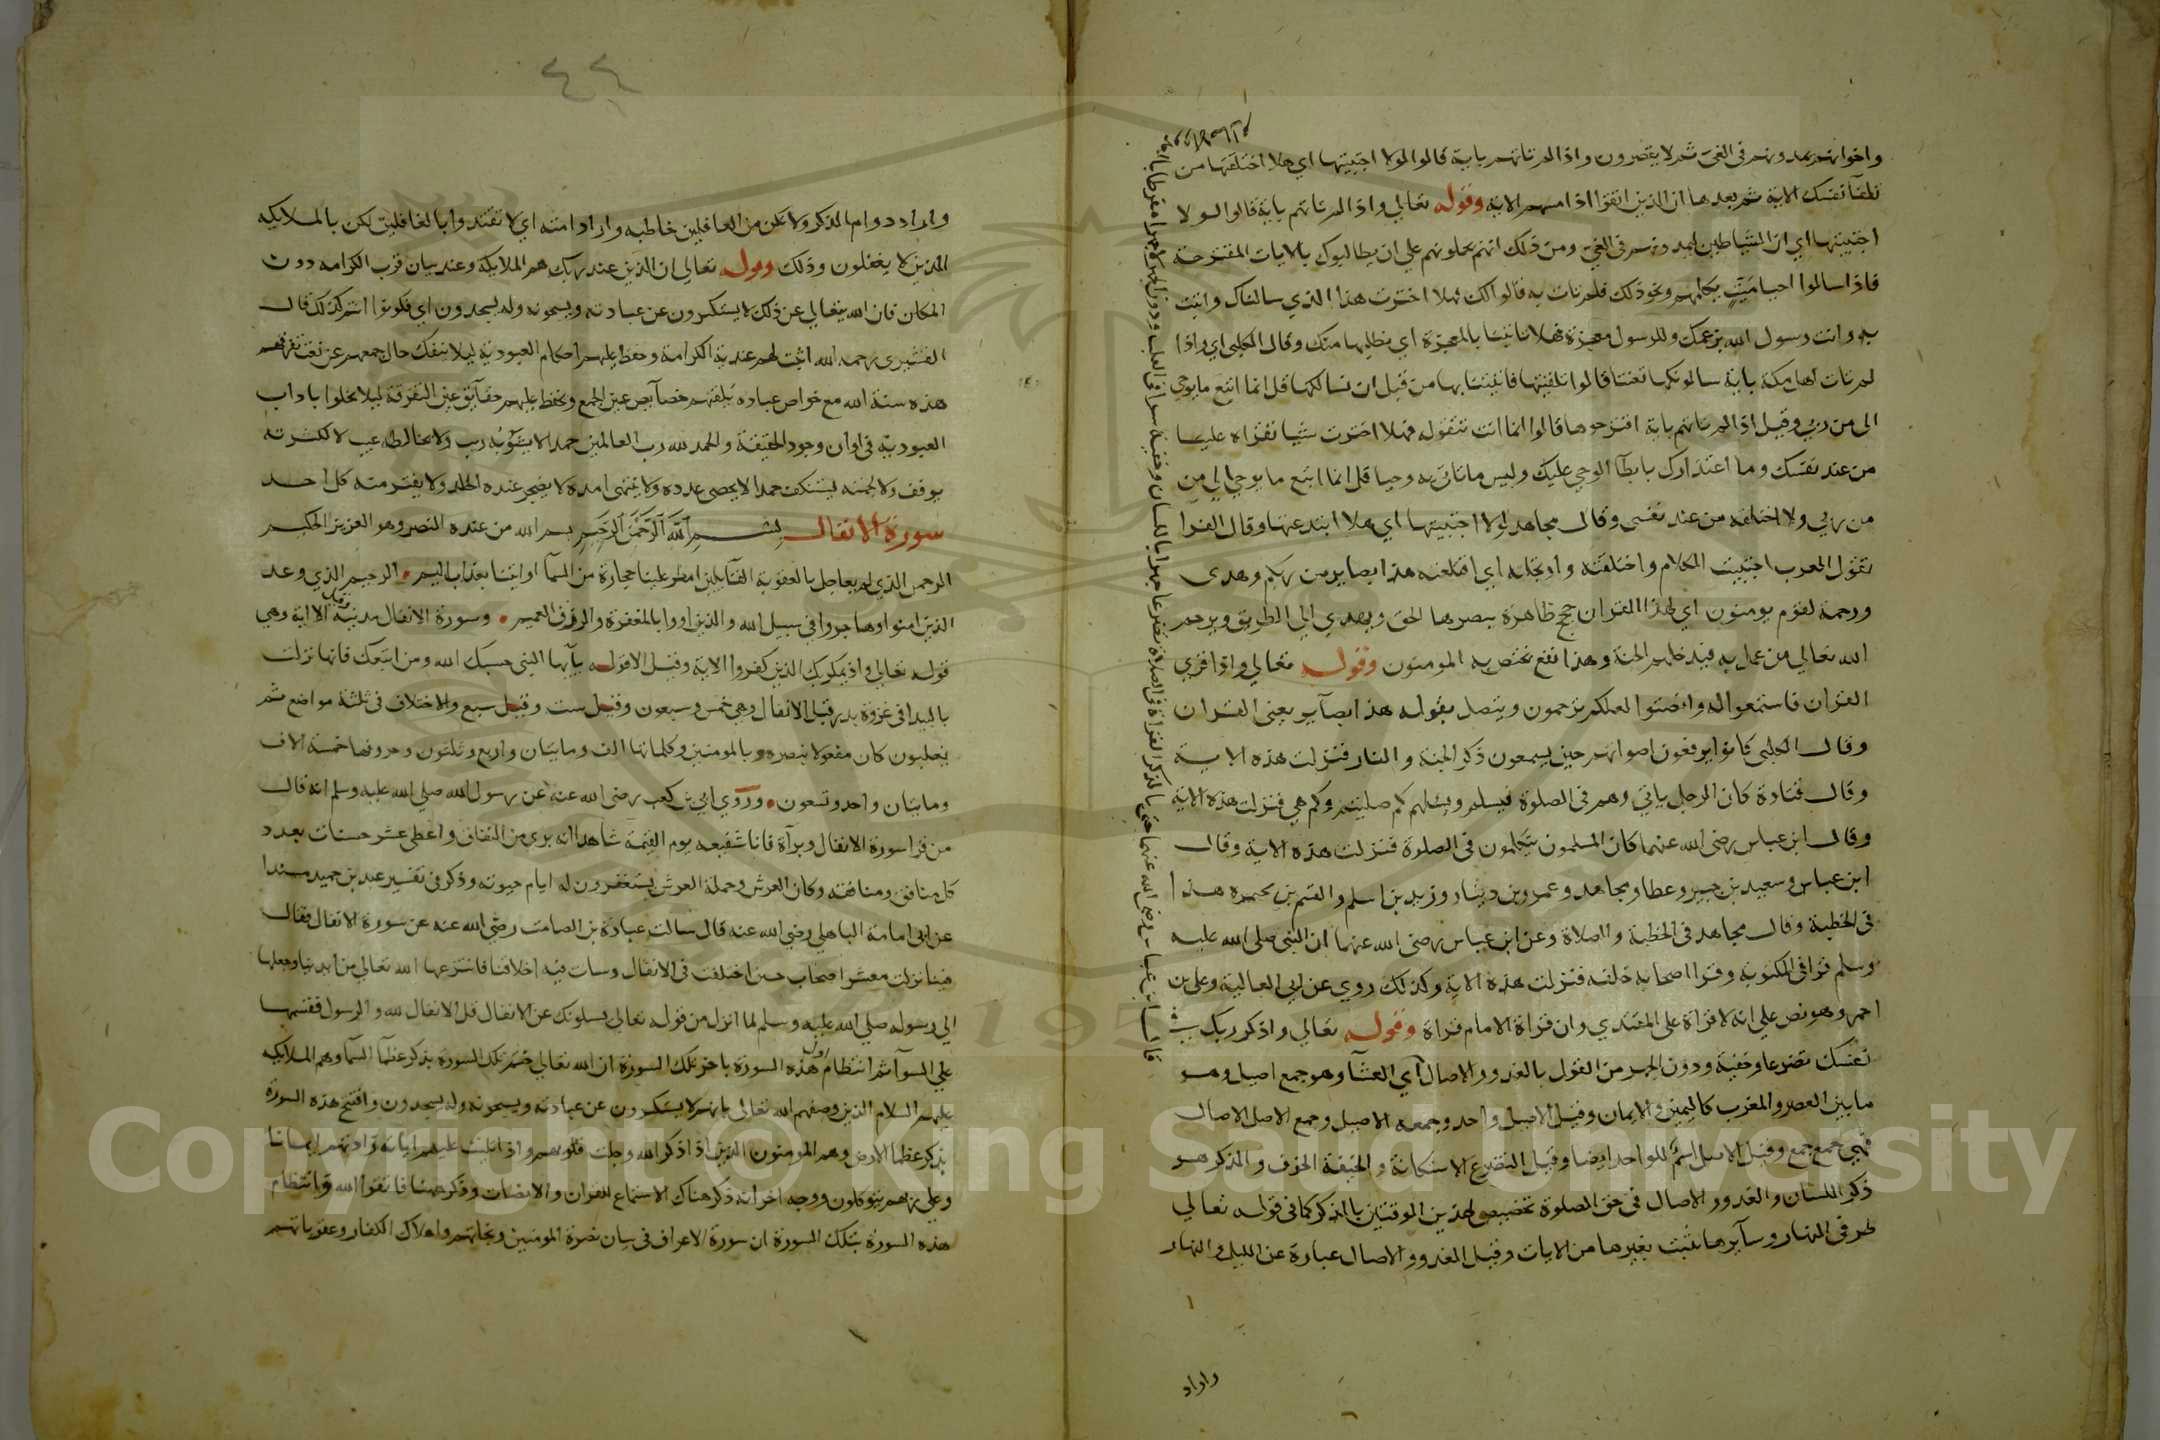 واخوانهم يمدونهم في الغي ثم لا يقصرون واذا لم تاتهم باية قالوا لولا اجتبيتها اي هلا اختلقتها من
تلقآ نفسك الاية ثم بعدها ان الذين اتقوا اذا مسهم الاية وقوله تعالي واذا لم تاتهم باية قالوا لولا
اجتبيتها اي ان الشياطين يمدونهم في الغي ومن ذلك انهم يحملونهم علي ان يطالبوك بالايات المقترحة
فاذا سالوا احيا ميت يكلمهم ونحو ذلك فلم تات به قالوا لك فهلا اخترت هذا الذي سالناك وانت
به وانت رسول الله بزعمك وللرسول معجزة فهلا تاتينا بالمعجزة اي نطلبها منك وقال الكلبي اي واذا
لم تات اهل مكة باية سالونكها تعنتا قالوا تلقيتها فانبئنا بها من قبل ان نسالكها قل انما اتبع ما يوحي
الي من ربي وقيل اذا لم تاتهم باية اقترحوها قالوا انما انت تتقوله فهلا اخترت شيا تقراه علينا
من عند نفسك وما اعتذارك بابطآ الوحي عليك وليس ما تاتي به وحيا قل انما اتبع ما يوحي الي من
من ربي ولا اختلقه من عند نفسي وقال مجاهد لولا اجتبيتها اي هلا ابتدعتها وقال الفرا
تقول العرب اجتبيت الكلام واختلقته وارتجلته اي افتعلته هذا بصاير من ربكم وهدى
ورحمة لقوم يومنون اي لهذا القران حجج ظاهرة يبصرها الحق ويهدي الي الطريق ويرحم
الله تعالي من عمل به فيدخلهم الجنة وهذا نفع يختص به المومنون وقوله تعالي واذا قري
القران فاستمعوا له وانصتوا لعلكم ترحمون ويتصل بقوله هذا بصآير يعني القران
وقال الكلبي كانوا يرفعون اصواتهم حين يسمعون ذكر الجنة والنار فنزلت هذه الاية
وقال قتادة كان الرجل ياتي وهم في الصلوة فيسلم ويسلهم كم صليتم وكم هي فنزلت هذه الاية
وقال ابن عباس رضي الله عنهما كان المسلمون يتكلمون في الصلوة فنزلت هذه الاية وقال
ابن عباس وسعيد بن جبير وعطا ومجاهد وعمرو بن دينار وزيد بن اسلم والقسم بن مخيمره هذا
في الخطبة وقال مجاهد في الخطبة والصلاة وعن ابن عباس رضي الله عنهما ان النبي صلى الله عليه
وسلم قرا في المكتوبة وقرا اصحابه خلفه فنزلت هذه الاية وكذلك روي عن ابي العالية وعلي بن
احمر وهو نص علي انه لا قراة علي المقتدي وان قراة الامام قراة وقوله تعالي واذكر ربك في
نفسك تضرعا وخفية ودون الجهر من القول بالغدو والاصال اي العشآ وهو جمع اصيل وهو
ما بين العصر والمغرب كاليمين والايمان وقيل الاصيل واحد وجمعه الاصل وجمع الاصل الاصال
فهي جمع جمع وقيل الاصل اسم للواحد ايضا وقيل التضرع الاستكانة والخيفة الخوف والذكر هو
ذكر اللسان والغدو والاصال في حق الصلوة تخصيص لهذين الوقتين بالذكر كما في قوله تعالي
طرفي النهار وسآيرها يثبت بغيرها من الايات وقيل الغدو والاصال عبارة عن الليل والنهار
قال ابن عباس رضي الله عنهما يعني بالذكر القراة في الصلاة تضرعا جهرا باللسان وخفية سرا في القلب ودون الجهر
واراد
٤٤
واراد دوام الذكر ولا تكن من الغافلين خاطبه واراد امته اي لا تقتدوا بالغافلين لكن بالملايكة
الذين لا يغفلون وذلك وقوله تعالي ان الذين عند ربك هم الملايكة وعند بيان قرب الكرامه دون
المكان فان الله يتعالي عن ذلك لا يستكبرون عن عبادته ويسبحونه وله يسجدون اي فكونوا انتم كذلك قال
القشيري رحمه الله اثبت لهم عندية الكرامة وحفظ عليهم احكام العبودية ليلا ينفك حال جمعهم عن نعت تفرقتهم
هذه سنة الله مع خواص عباده يلقيهم خصآيص عين الجمع ويحفظ عليهم حقآيق عين التفرقة ليلا يخلوا باداب
العبودية في اوان وجود الحقيقة والحمد لله رب العالمين حمدا لا يشوبه ريب ولا يخالطه عيب لا لكثرته
يوقف ولا لحسنه يستنكف حمدا لا يحصي عدده ولا ينتهي امده لا يضجر عنده الخلد ولا يفتر منه كل احد
سورة الانفال بسم الله الرحمن الرحيم بسم الله من عنده النصر وهو العزيز الحكيم
الرحمن الذي لم يعاجل بالعقوبة القآيلين امطر علينا حجارة من السمآ او ايتنا بعذاب اليم الرحيم الذي وعد
الذين امنوا وهاجروا في سبيل الله والذين اووا بالمغفرة والرزق العميم وسورة الانفال مدنية وقيل الا اية وهي
قوله تعالي واذ يمكر بك الذين كفروا الاية وقيل الا قوله يآيها النبي حسبك الله ومن اتبعك فانها نزلت
بالبيدا في غزوة بدر قبل الانفال وهي خمس وسبعون وقيل ست وقيل سبع والاختلاف في ثلثة مواضع ثم
يغلبون كان مفعولا بنصره وبالمومنين وكلماتها الف ومايتان واربع وثلثون وحروفها خمسة الاف
ومايتان واحد وتسعون وروي ابي بن كعب رضي الله عنه عن رسول الله صلى الله عليه وسلم انه قال
من قرا سورة الانفال وبرآة فانا شفيعه يوم القيمة شاهد انه بري من النفاق واعطي عشر حسنات بعدد
كل منافق ومنافقة وكان العرش وحملة العرش يستغفرون له ايام حيوته وذكر في تفسير عبد بن حميد مسندا
عن ابي امامة الباهلي رضي الله عنه قال سالت عبادة بن الصامت رضي الله عنه عن سورة الانفال فقال
فينا نزلت معشر اصحاب حين اختلفت في الانفال وسات فيه اخلاقنا فانتزعها الله تعالي من ايدينا وجعلها
الي رسوله صلي الله عليه وسلم لما انزل من قوله تعالي يسلونك عن الانفال قل الانفال لله والرسول فقسمها
علي السوآ ثم انتظام اول هذه السورة باخر تلك السورة ان الله تعالي ختم تلك السورة بذكر عظمآ السمآ وهم الملايكة
عليهم السلام الذين وصفهم الله تعالي بانهم لا يستكبرون عن عبادته ويسبحونه وله يسجدون وافتتح هذه السورة
بذكر عظما الارض وهم المومنون الذين اذا ذكر الله وجلت قلوبهم واذا تليت عليهم اياته زادتهم ايمانا
وعلي ربهم يتوكلون ووجه اخر انه ذكر هناك الاستماع للقران والانصات وذكر ههنا فاتقوا الله وانتظام
هذه السورة بتلك السورة ان سورة الاعراف في بيان نصرة المومنين ونجاتهم واهلاك الكفار وعقوباتهم
Copyright © King Saud University
195